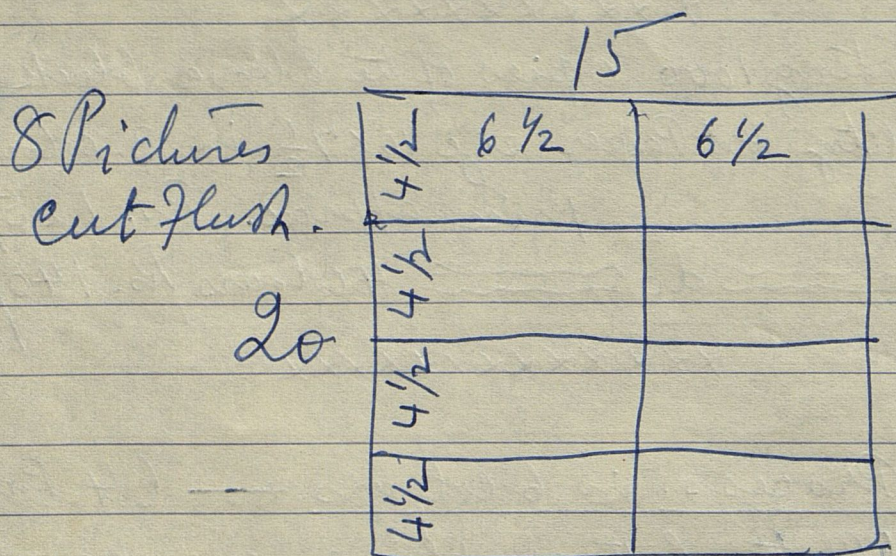 15
8 Pictures
cut Flush.
20
4 1/2 6 1/2 6 1/2
4 1/2
4 1/2
4 1/2